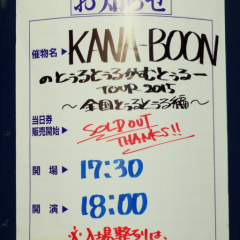 お知らせ
催物名▶KANA-BOON
のとぅるとぅるかむとぅるー
TOUR 2015
～全国とぅるとぅる編～
当日券
販売開始▶SOLD OUT
THANKS!!
開場▶17:30
開演▶18:00
※入場整列は、